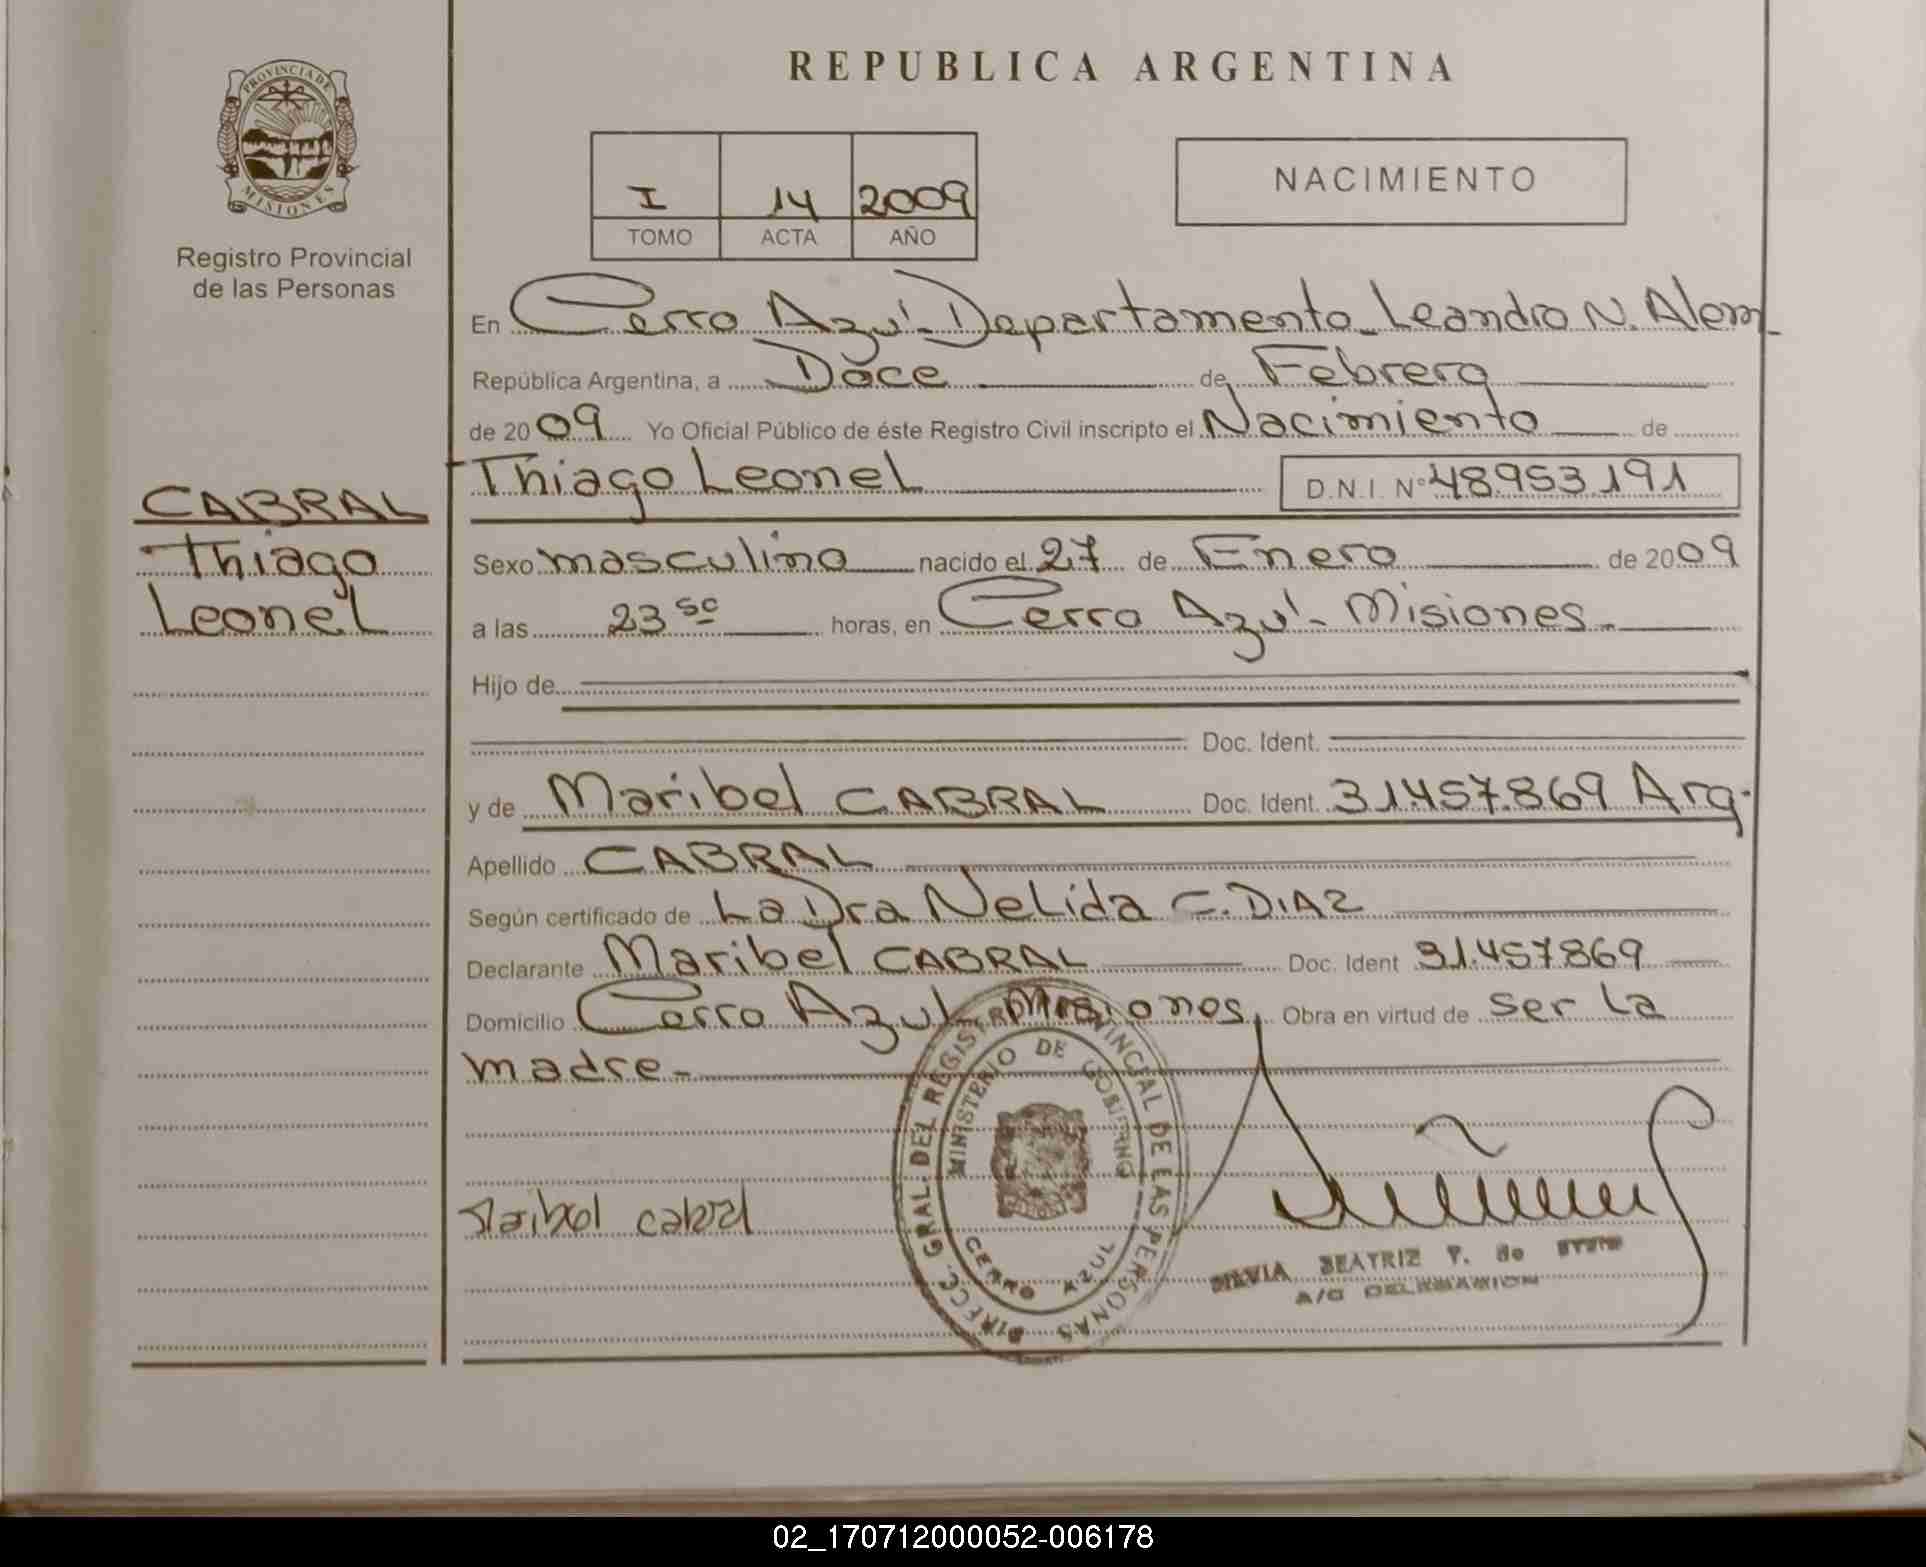 PROVINCIA DE
MISIONES
Registro Provincial
de las Personas
CABRAL
Thiago
Leonel
REPUBLICA ARGENTINA
I 14 2009
TOMO ACTA AÑO
NACIMIENTO
En Cerro Azul - Departamento Leandro N. Alem -
República Argentina, a Doce de Febrero
de 2009 Yo Oficial Público de éste Registro Civil inscripto el Nacimiento de
Thiago Leonel D.N.I. Nº 48.953.191
Sexo masculino nacido el 27 de Enero de 2009
a las 23 50 horas, en Cerro Azul - Misiones -
Hijo de
Doc. Ident.
y de Maribel CABRAL Doc. Ident. 31.457.869 Arg.
Apellido CABRAL
Según certificado de La Dra Nelida C. DIAZ
Declarante Maribel CABRAL Doc. Ident 31.457.869
Domicilio Cerro Azul - Misiones, Obra en virtud de ser la
madre -
DIRECC. GRAL. DEL REGISTRO PROVINCIAL DE LAS PERSONAS
MINISTERIO DE GOBIERNO
CERRO AZUL
Maribel cabral
SILVIA BEATRIZ de
A/C DELEGACION
02_170712000052-006178